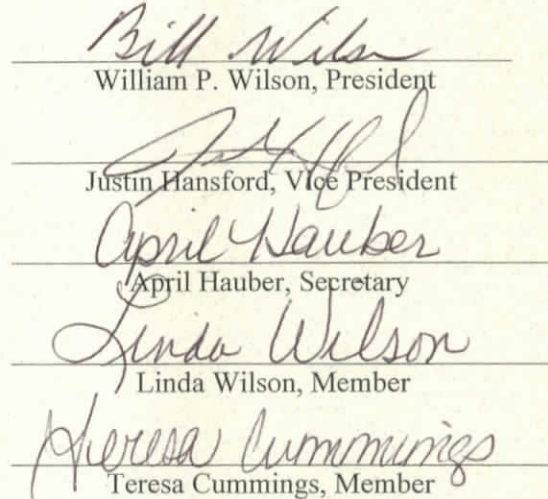 Bill Wilson
William P. Wilson, President
Justin Hansford, Vice President
April Hauber
April Hauber, Secretary
Linda Wilson
Linda Wilson, Member
Teresa Cummings
Teresa Cummings, Member